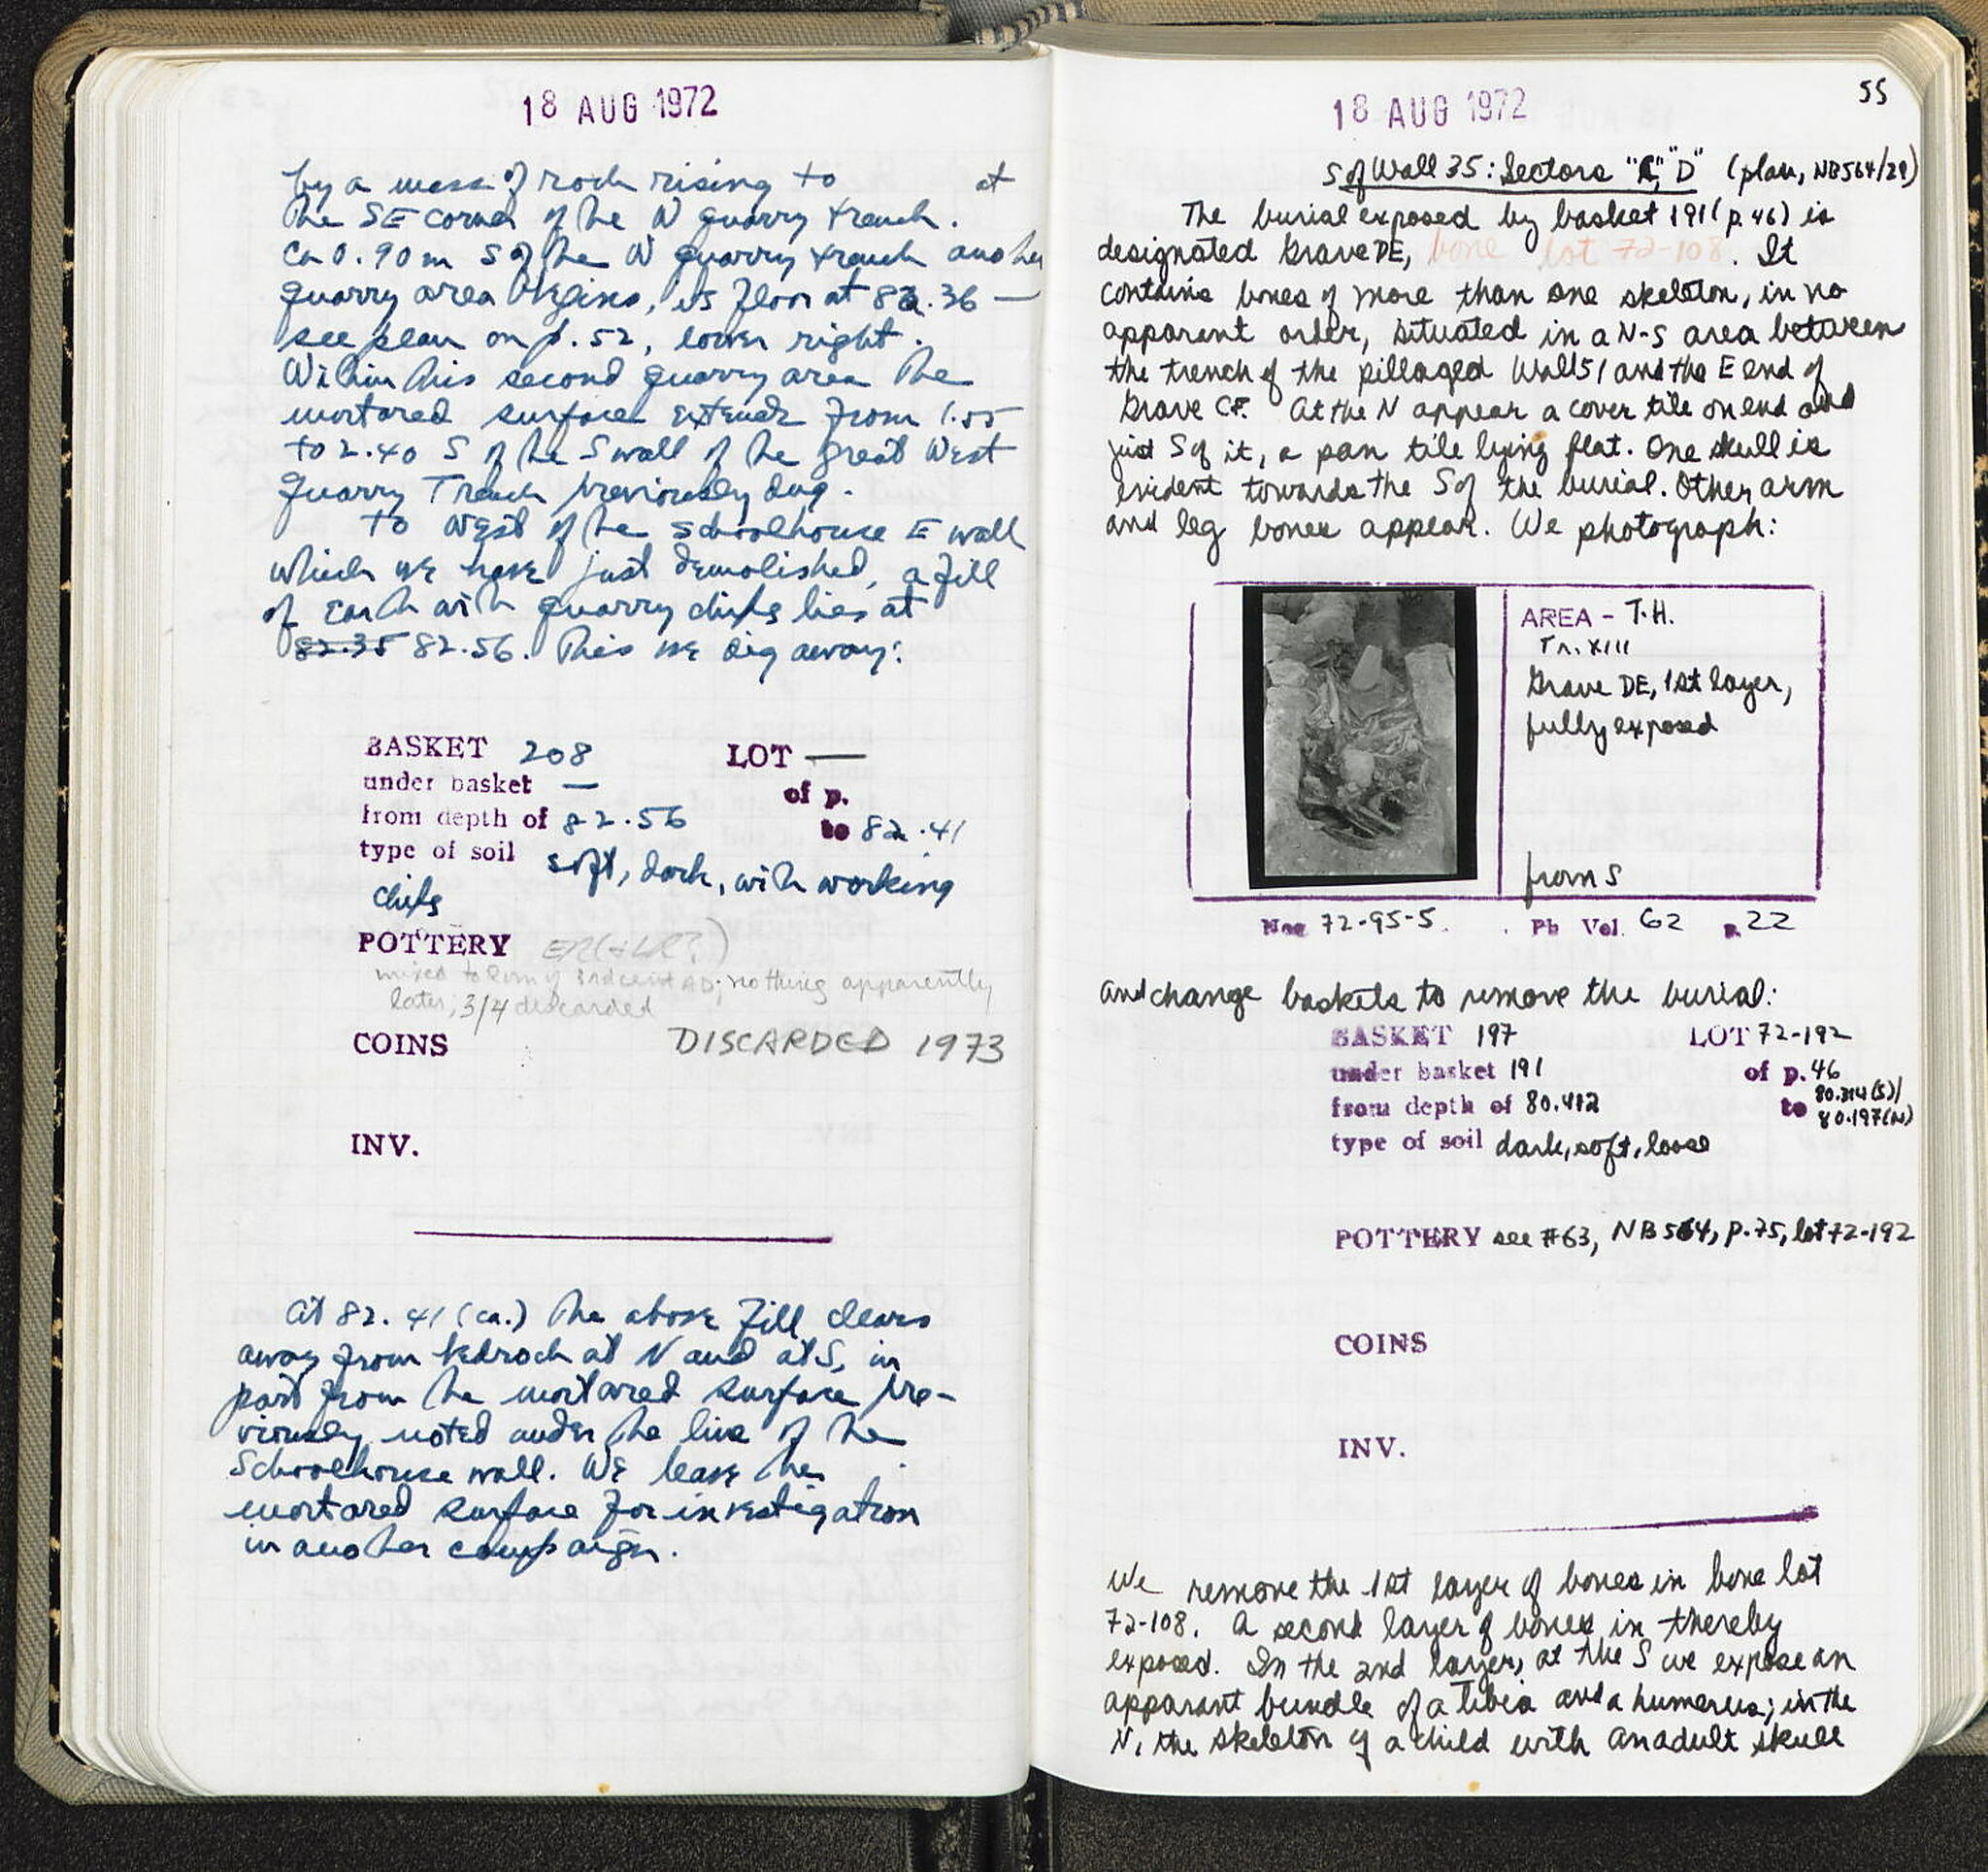 18 AUG 1972
by a mass of rock rising to at
the SE corner of the W quarry trench.
Ca 0.90 m S of the W quarry trench another
quarry area begins, its floor at 82.36 —
see plan on p. 52, lower right.
Within this second quarry area the
mortared surface extends from 1.55
to 2.40 S of the S wall of the great West
Quarry Trench previously dug.
To West of the schoolhouse E wall
which we have just demolished, a fill
of earth with quarry chips lies at
82.35 82.56. This we dig away:
BASKET 208 LOT —
under basket — of p.
from depth of 82.56 to 82.41
type of soil soft, dark, with working
chips
POTTERY ER(+LR?)
mixed to Rom of 3rd cent AD; nothing apparently
later; 3/4 discarded
COINS DISCARDED 1973
INV.
At 82.41 (ca.) the above fill clears
away from bedrock at N and at S, in
part from the mortared surface pre-
viously noted under the line of the
Schoolhouse wall. We leave the
mortared surface for investigation
in another campaign.
55
18 AUG 1972
S of Wall 35: Sectors "C," "D" (plan, NB564/29)
The burial exposed by basket 191 (p. 46) is
designated Grave DE, bone lot 72-108. It
contains bones of more than one skeleton, in no
apparent order, situated in a N-S area between
the trench of the pillaged Wall 51 and the E end of
Grave CF. At the N appear a cover tile on end and
just S of it, a pan tile lying flat. One skull is
evident towards the S of the burial. Other arm
and leg bones appear. We photograph:
AREA - T.H.
Tr. XIII
Grave DE, 1st layer,
fully exposed
from S
Neg 72-95-5. Ph Vol. 62 p. 22
and change baskets to remove the burial:
BASKET 197 LOT 72-192
under basket 191 of p. 46
from depth of 80.412 to 80.314(S)/
80.197(N)
type of soil dark, soft, loose
POTTERY see #63, NB564, p.75, lot 72-192
COINS
INV.
We remove the 1st layer of bones in bone lot
72-108. A second layer of bones in thereby
exposed. In the 2nd layer, at the S we expose an
apparant bundle of a tibia and a humerus; in the
N, the skeleton of a child with an adult skull